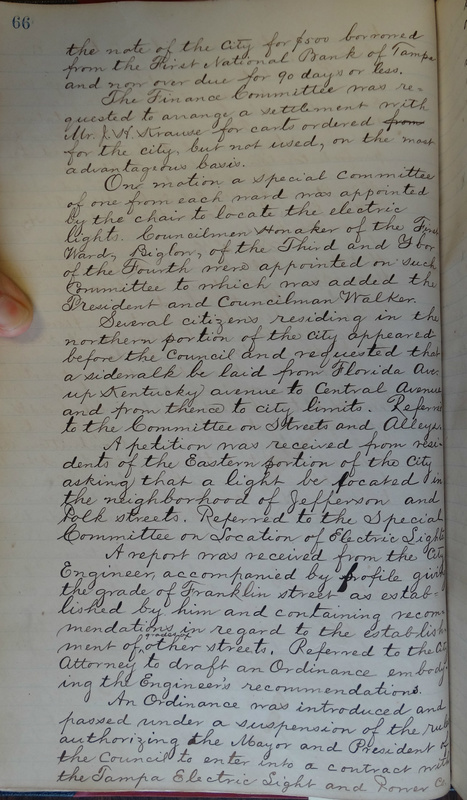 66
the note of the City for $500 borrowed
from the First National Bank of Tampa
and now over due for 90 days or less.
The Finance Committee was re-
quested to arrange a settlement with
Mr. J. H. Krause for carts ordered from
for the city, but not used, on the most
advantageous basis.
On motion a special committee
of one from each ward was appointed
by the chair to locate the electric
lights. Councilmen Honaker of the First
Ward, Biglow, of the Third and Ybor
of the Fourth were appointed on such
Committee to which was added the
President and Councilman Walker.
Several citizens residing in the
northern portion of the city appeared
before the Council and requested that
a sidewalk be laid from Florida Ave.
up Kentucky avenue to Central Avenue
and from thence to city limits. Referre
to the Committee on Streets and Alleys.
A petition was received from resi-
dents of the Eastern portion of the City
asking that a light be located in
the neighborhood of Jefferson and
Polk streets. Referred to the Special
Committee on Location of Electric Lights
A report was received from the City
Engineer, accompanied by profile givin
the grade of Franklin street as estab-
lished by him and containing recom-
mendations in regard to the establish
ment of grades of other streets. Referred to the City
Attorney to draft an Ordinance embody-
ing the Engineer's recommendations.
An Ordinance was introduced and
passed under a suspension of the rule
authorizing the Mayor and President of
the Council to enter into a contract with
the Tampa Electric Light and Power Co.